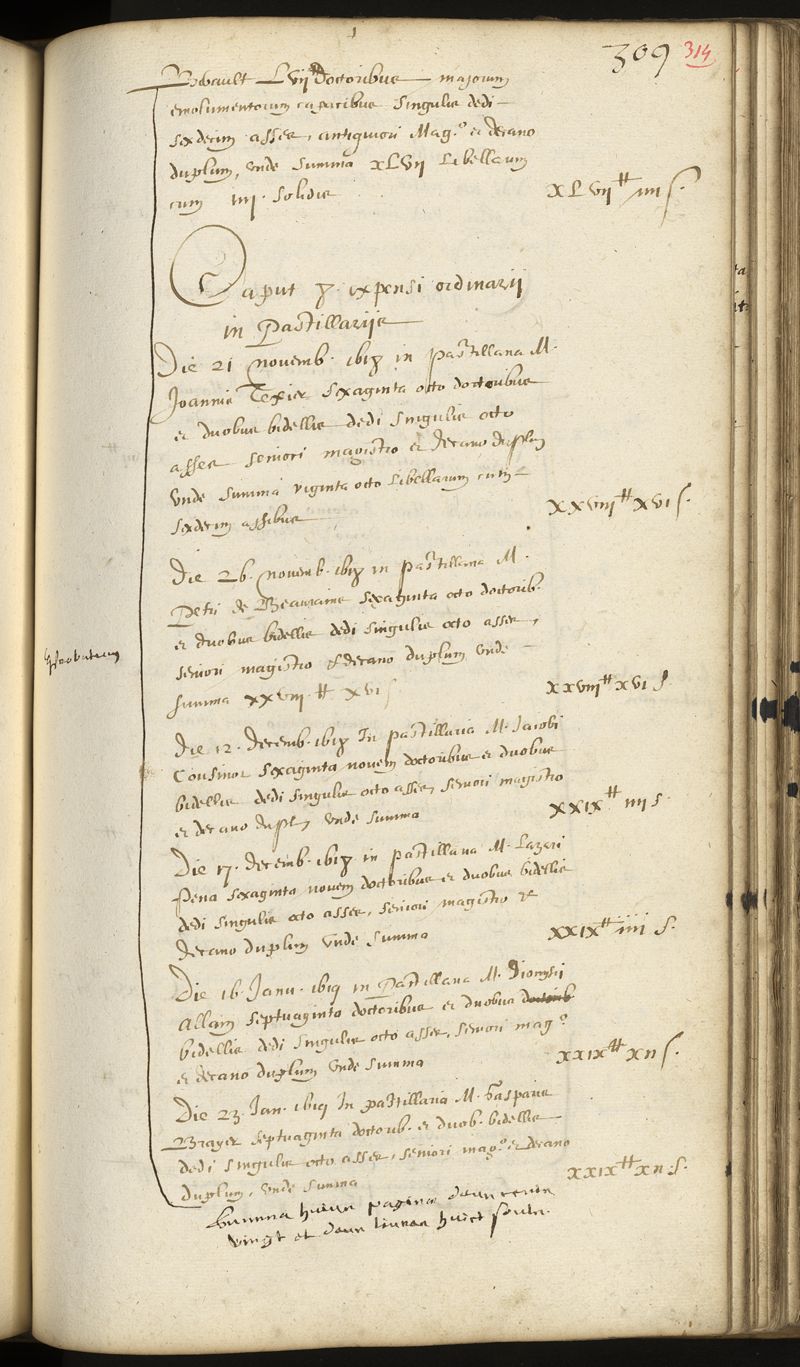 309 314
Bobault Lvii doctoribus majorum
emolumentorum capacibus singulis dedi
sexdecim asses, antiquiori Mag.o et decano
duplum, unde summa xLvij Libellarum
cum iiij. solidis xLvij ₶ iiij s.
Caput 7. expensi ordinarij
in Pastillarijs
Die 21 novemb. 1618 in pastillaria M.
Joannis Texier sexaginta octo doctoribus
et duobus bidellis dedi singulis octo
asses seniori magistro et decano duplum
unde summa viginta octo Libellarum cum
sexdecim assibus xxviii ₶ xvi s.
Die 26. novemb. 1618 in pastillaria M.
Petri de Beaurains sexaginta octo doctorib.
et duobus bidellis dedi singulis octo asses,
seniori magistro et decano duplum unde
summa xxviii ₶ xvi s xxviii ₶ xvi s.
Die 12. decemb. 1618 In pastillaria M. Jacobi
Cousinot sexaginta novem doctoribus et duobus
bidellis dedi singulis octo asses, seniori magistro
et decano dupl. unde summa xxix ₶ iiii s.
Die 17. decemb. 1618 in pastillaria M. Lazari
Pena sexaginta novem doctoribus et duobus bidellis
dedi singulis octo asses, seniori magistro et
decano duplum unde summa xxix ₶ iiii s.
Die 16. Janu. 1619 in Pastillaria M. Dionysij
Allain septuaginta doctoribus et duobus doctorib.
bidellis dedi singulis octo asses, seniori mag.o
et decano duplum unde summa xxix ₶ xii s.
Die 23. Jan. 1619 In pastillaria M. Gasparis
Brayer septuaginta doctorib. et duob. bidellis
dedi singulis octo asses, seniori mag.o et decano
duplum, unde summa xxix ₶ xii s.
Summa huius paginae deux cents
vingt et deux livres huict soulz.